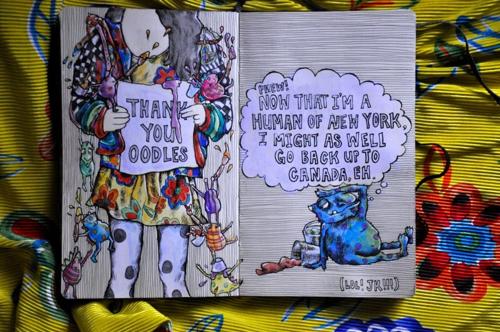 THANK
YOU
OODLES
PHEW!
NOW THAT I'M A
HUMAN OF NEW YORK,
I MIGHT AS WELL
GO BACK UP TO
CANADA, EH.
(LOL! JK!!!)